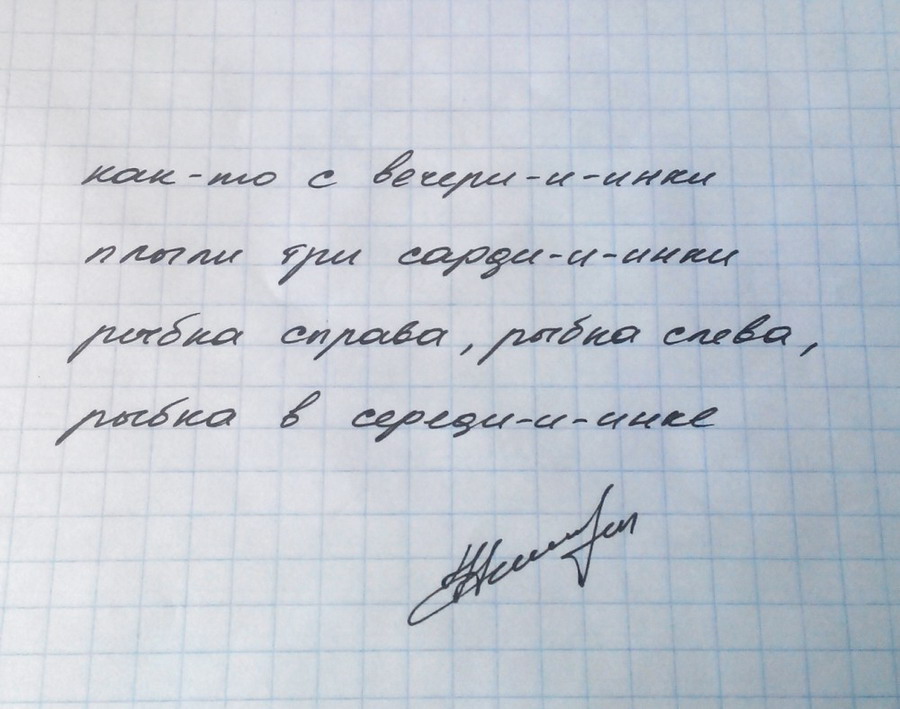 как-то с вечери-и-инки
плыли три сарди-и-инки
рыбка справа, рыбка слева,
рыбка в середи-и-инке